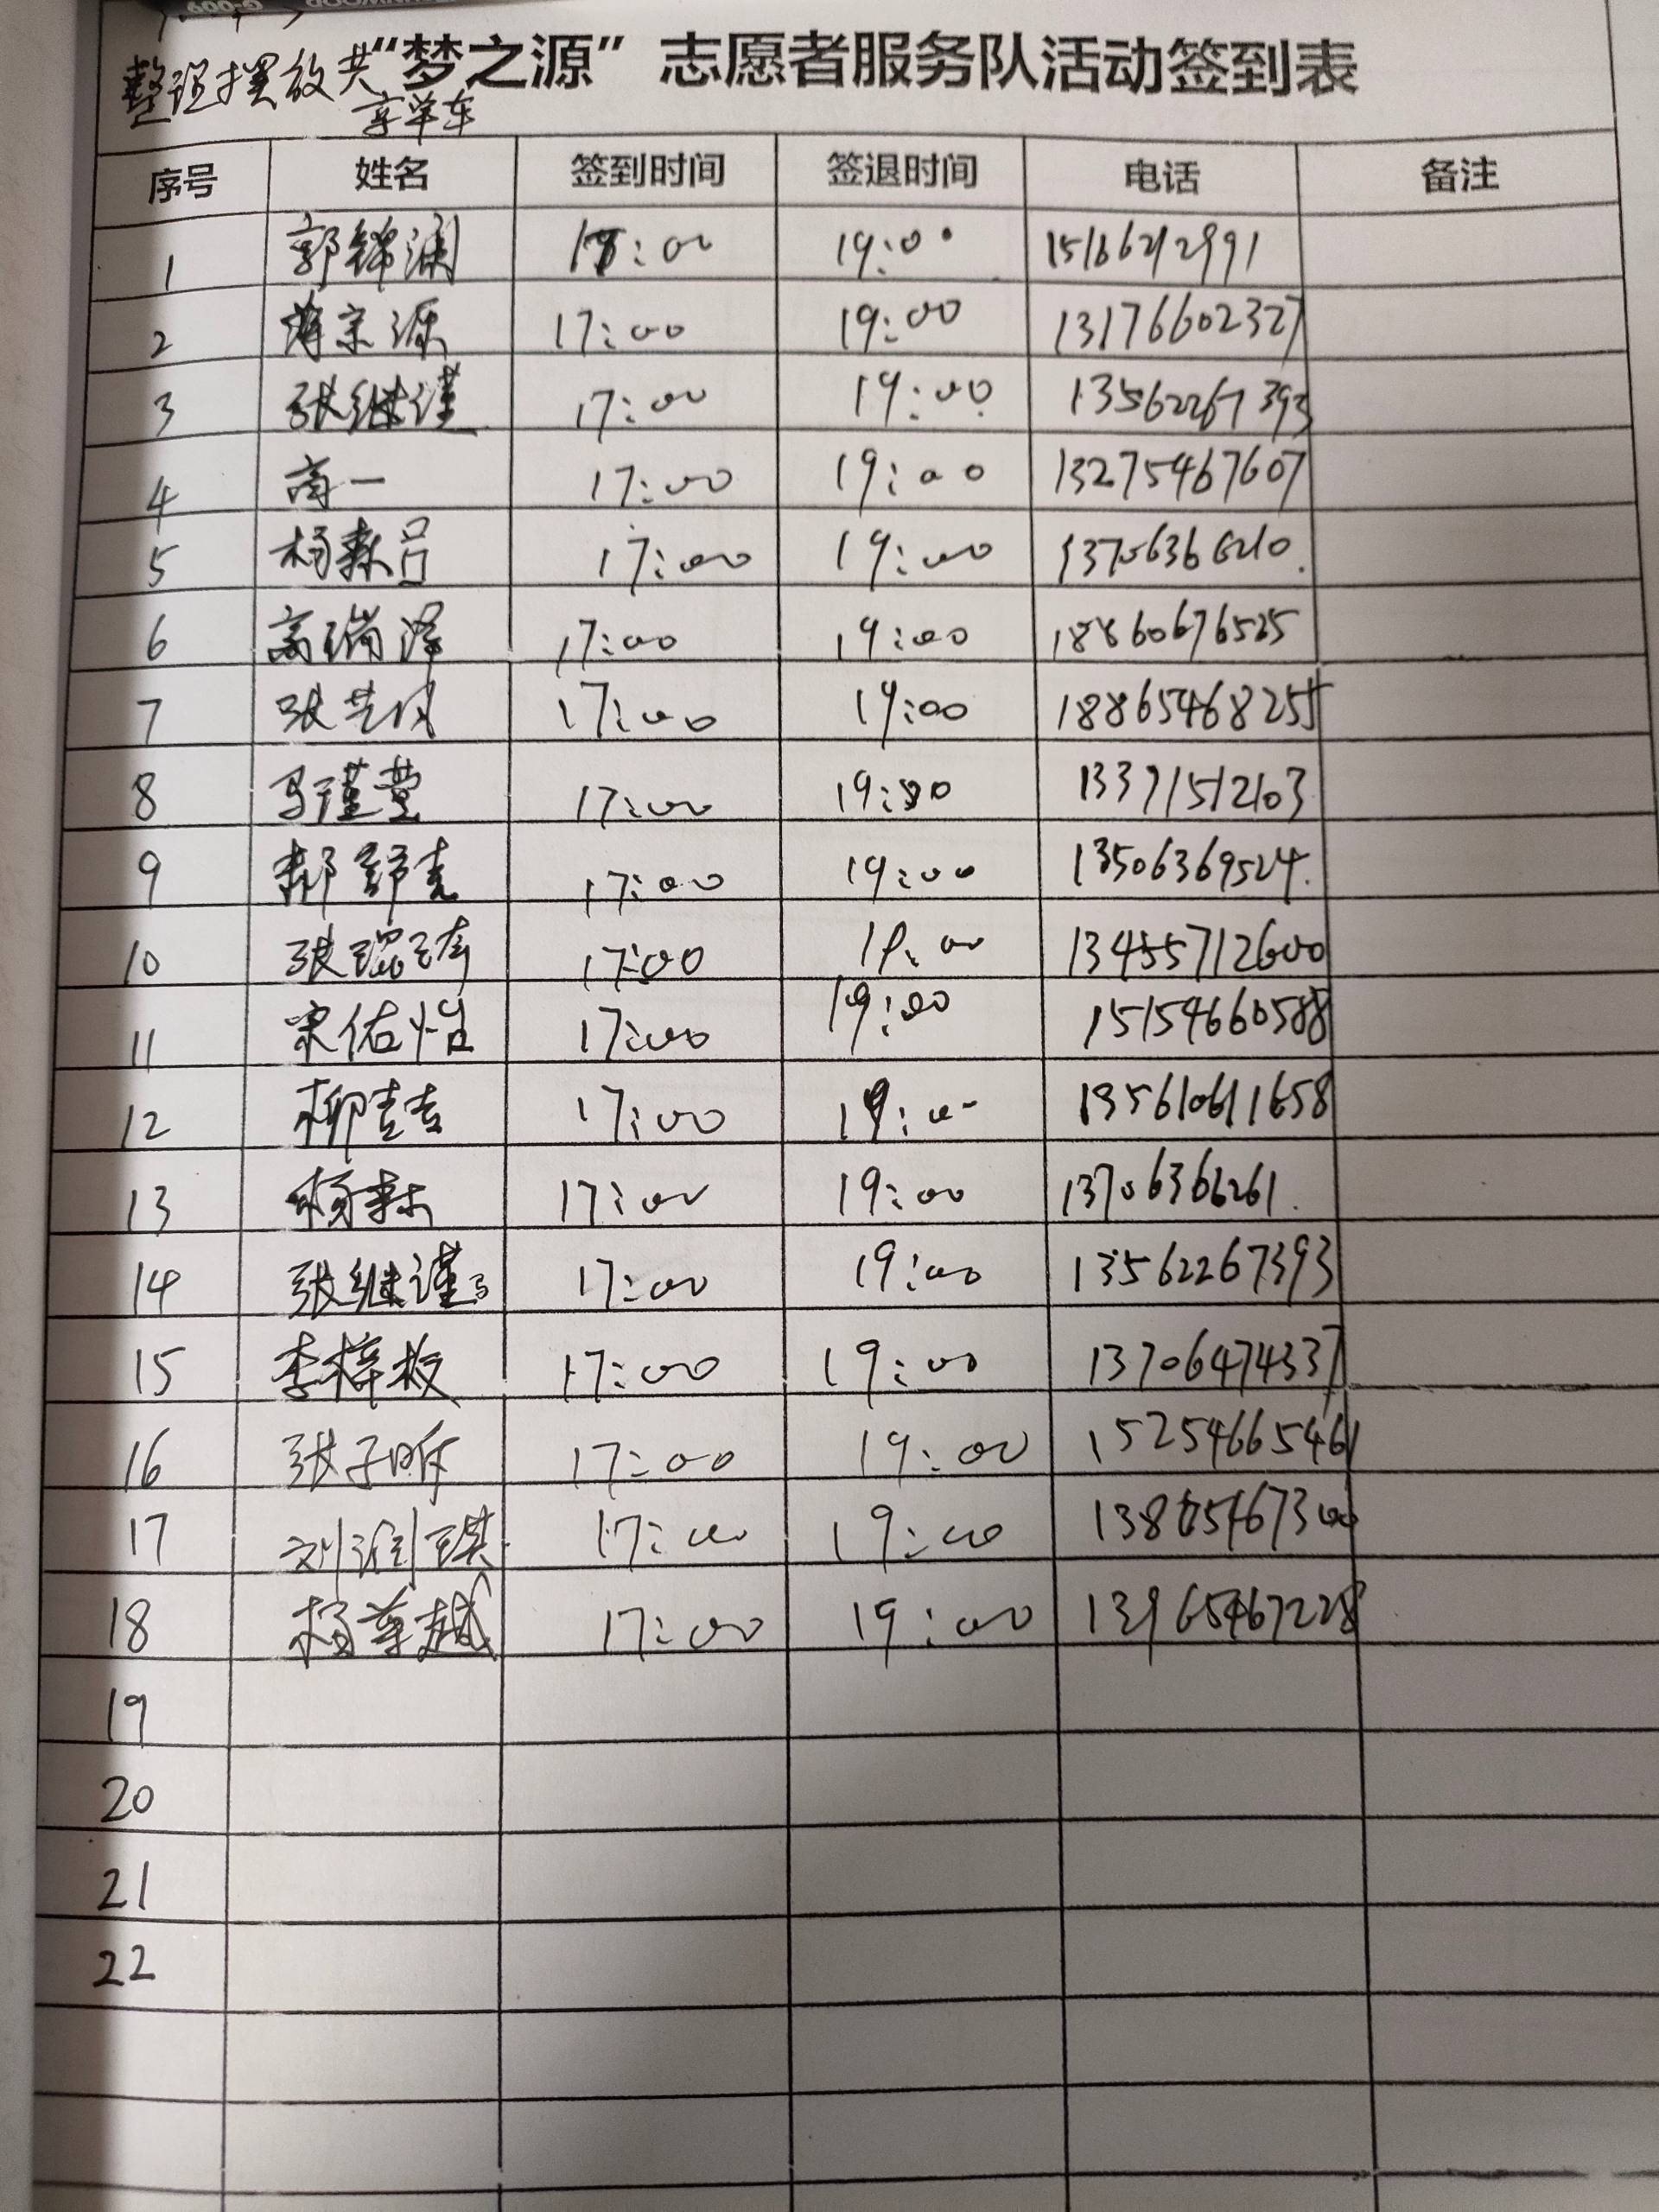 整理摆放共
享单车
“梦之源”志愿者服务队活动签到表
序号 姓名 签到时间 签退时间 电话 备注
1 郭锦澜 17:00 19:00 15166212991
2 薄宗源 17:00 19:00 13176602327
3 张继谨 17:00 19:00 13562267393
4 高一 17:00 19:00 13275467607
5 杨森吕 17:00 19:00 13706366210.
6 高瑞泽 17:00 19:00 18860676525
7 张艺凡 17:00 19:00 18865468255
8 马瑾萱 17:00 19:00 13371512103
9 郝舒克 17:00 19:00 13506369524.
10 张琨琦 17:00 19:00 13455712600
11 宋佑怡 17:00 19:00 15154660588
12 柳青青 17:00 19:00 13561061658
13 杨森 17:00 19:00 13706366261.
14 张继谨 17:00 19:00 13562267393
15 李梓枚 17:00 19:00 13706474337
16 张子昕 17:00 19:00 15254665461
17 刘润琪 17:00 19:00 13865467300
18 杨尊越 17:00 19:00 13965467228
19
20
21
22